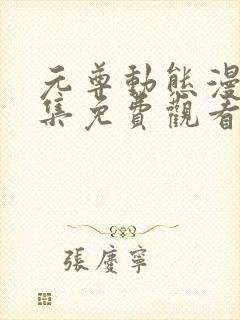 元尊動態漫
集免費觀看
張慶寧